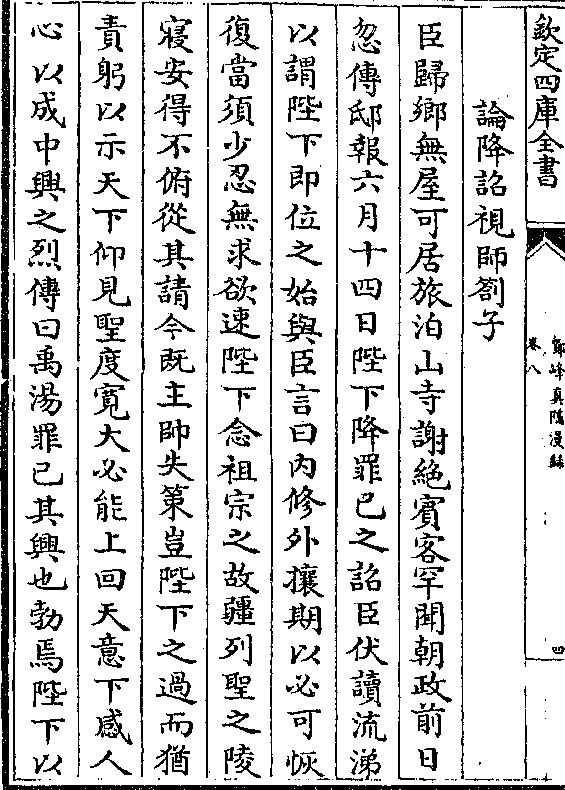 欽定四庫全書
鄮峰真隱漫録
卷八
四
論降詔視師劄子
臣歸鄉無屋可居旅泊山寺謝絶賓客罕聞朝政前日
忽傳邸報六月十四日陛下降罪已之詔臣伏讀流涕
以謂陛下即位之始與臣言曰内修外攘期以必可恢
復當須少忍無求欲速陛下念祖宗之故疆列聖之陵
寢安得不俯從其請今既主帥失策豈陛下之過而猶
責躬以示天下仰見聖度寛大必能上回天意下感人
心以成中興之烈傳曰禹湯罪已其興也勃焉陛下以